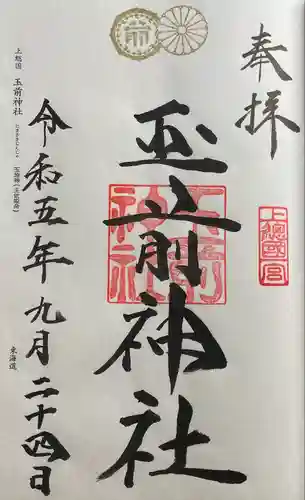 奉拝
上總國一宮
玉前神社
玉前神社
令和五年九月二十四日
上総国 玉前神社
東海道